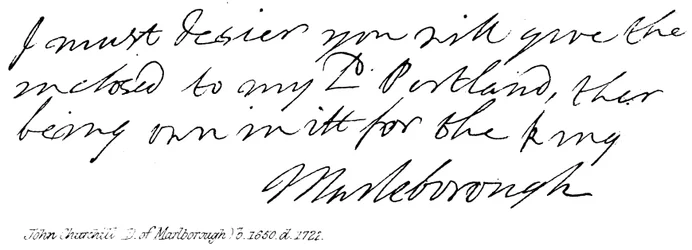 I must desier you will give the
inclosed to my Ld Portland, ther
being own in itt for the king
Marleborough
John Churchill D. of Marlborough b. 1650. d. 1722.